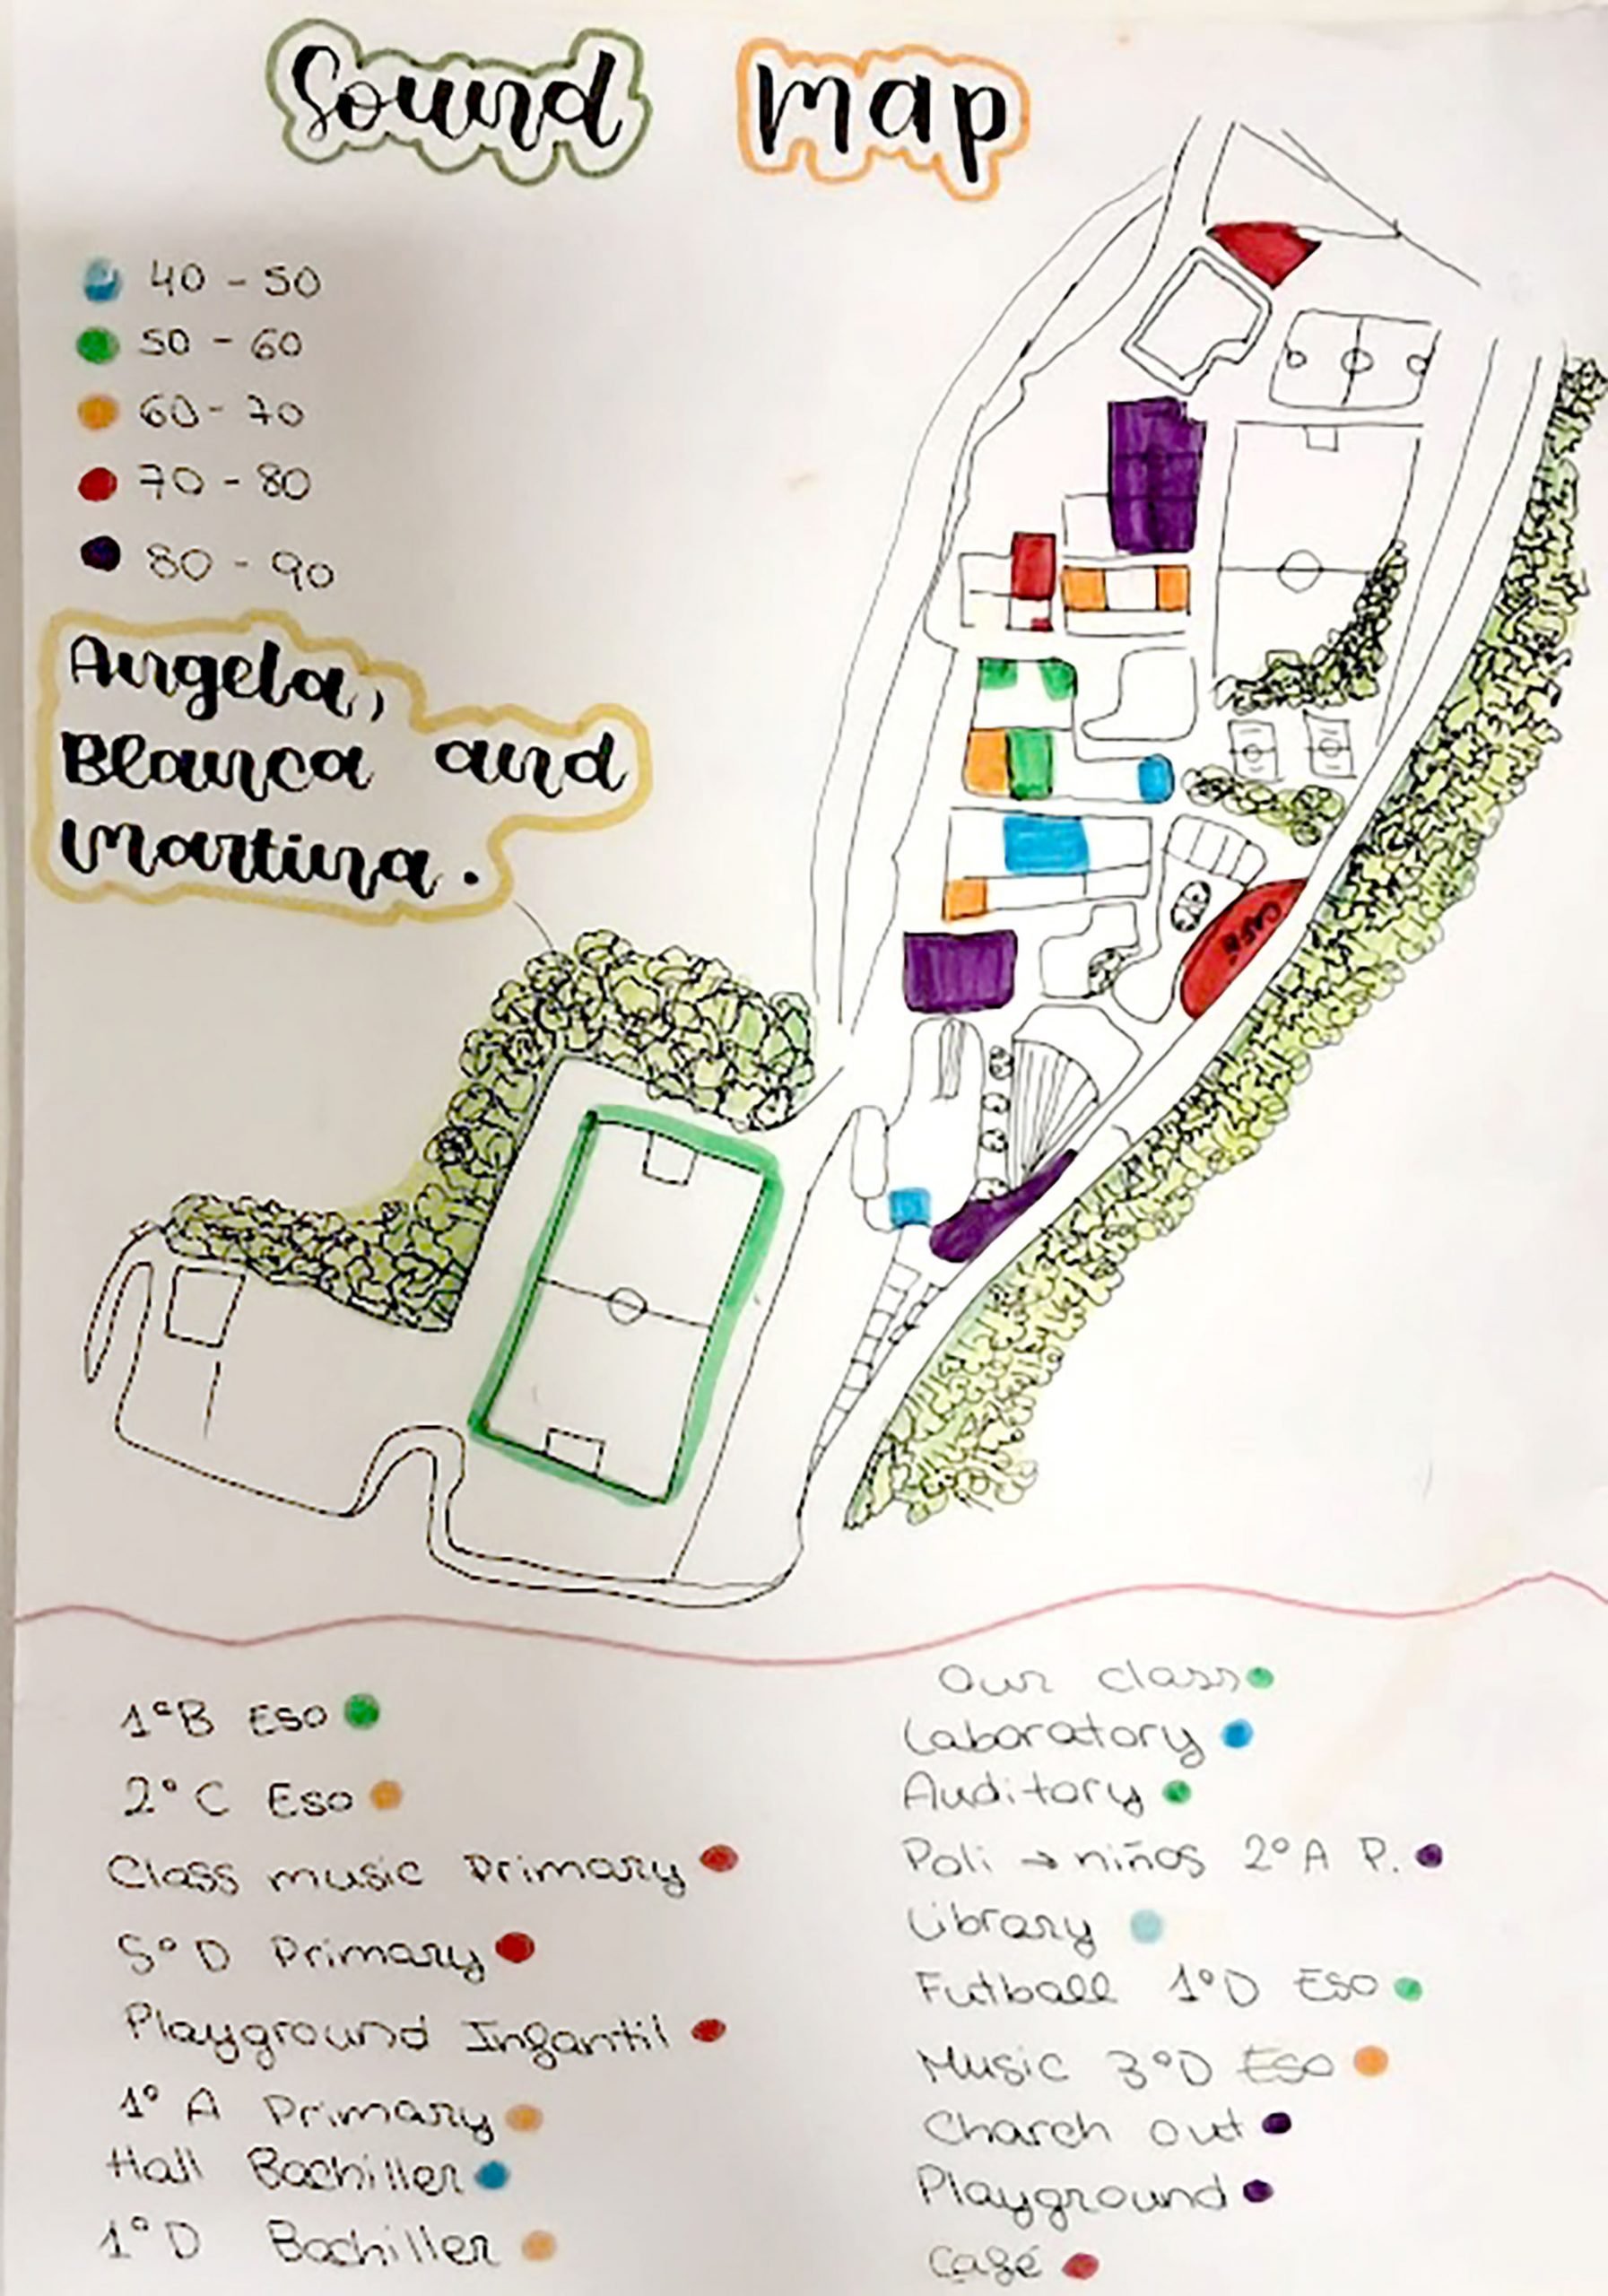 Sound Map
40 - 50
50 - 60
60 - 70
70 - 80
80 - 90
Angela,
Blanca and
Martina.
CAFÉ
1ºB Eso
2º C Eso
Class music Primary
5º D Primary
Playground Infantil
1º A Primary
Hall Bachiller
1º D Bachiller
Our class
Laboratory
Auditory
Poli → niños 2º A P.
Library
Futball 1º D Eso
Music 3ºD Eso
Charch out
Playground
Café